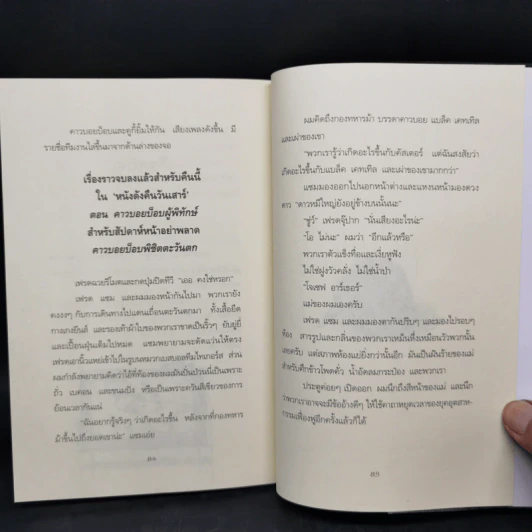 คาวบอยบ็อบและคูกี้ยิ้มให้กัน เสียงเพลงดังขึ้น มี
รายชื่อทีมงานไล่ขึ้นมาจากด้านล่างของจอ
เรื่องราวจบลงแล้วสำหรับคืนนี้
ใน 'หนังดังคืนวันเสาร์'
ตอน คาวบอยบ็อบผู้พิทักษ์
สำหรับสัปดาห์หน้าอย่าพลาด
คาวบอยบ็อบพิชิตตะวันตก
เฟรดฉวยรีโมตและกดปุ่มปิดทีวี "เออ คงใช่หรอก"
เฟรด แซม และผมมองหน้ากันไปมา พวกเรายัง
งงๆ กับการเดินทางไปแดนเถื่อนตะวันตกมา ทั้งเสื้อยืด
กางเกงยีนส์ และรองเท้าผ้าใบของพวกเราขาดเป็นริ้วๆ ยับยู่ยี่
และเปื้อนฝุ่นเต็มไปหมด แซมพยายามจะดัดแว่นให้ตรง
เฟรดเอานิ้วแหย่เข้าไปในรูบนหมวกเบสบอลทีมไทเกอร์ส ส่วน
ผมกำลังพยายามคิดว่าไอ้ที่ท้องของผมมันปั่นป่วนนี่เป็นเพราะ
ถั่ว เบคอน และขนมปัง หรือเป็นเพราะควันสีเขียวของการ
ย้อนเวลากันแน่
"ฉันอยากรู้จริงๆ ว่าเกิดอะไรขึ้น หลังจากที่กองทหาร
ม้าขึ้นไปถึงยอดเขาน่ะ" แซมเอ่ย
๗๑
ผมคิดถึงกองทหารม้า บรรดาคาวบอย แบล็ค เคทเทิล
และเผ่าของเขา
"พวกเรารู้ว่าเกิดอะไรขึ้นกับคัสเตอร์ แต่ฉันสงสัยว่า
เกิดอะไรขึ้นกับแบล็ค เคทเทิล และเผ่าของเขามากกว่า"
แซมมองออกไปนอกหน้าต่างและแหงนหน้ามองดวง
ดาว "ดาวหมีใหญ่ยังอยู่ข้างบนนั้นนะ"
"ชู่ว์" เฟรดจุ๊ปาก "นั่นเสียงอะไรน่ะ"
"โอ ไม่นะ" ผมว่า "อีกแล้วหรือ"
พวกเราตัวแข็งทื่อและเงี่ยหูฟัง
ไม่ใช่ฝูงวัวคลั่ง ไม่ใช่น้ำป่า
"โจเซฟ อาร์เธอร์"
แม่ของผมเองครับ
เฟรด แซม และผมมองตากันปริบๆ และมองไปรอบๆ
ห้อง สารรูปและกลิ่นของพวกเราเหม็นหึ่งเหมือนวัวพวกนั้น
เลยครับ แต่สภาพห้องแย่ยิ่งกว่านั้นอีก มันเป็นฝันร้ายของแม่
สำหรับศึกข้าวโพดคั่ว น้ำอัดลมกระป๋อง และพวกเรา
ประตูค่อยๆ เปิดออก ผมนึกถึงสีหน้าของแม่ และนึก
ว่าพวกเราอาจจะมีข้ออ้างดีๆ ให้ใช้คาถาหยุดเวลาของยุคอุตสาห-
กรรมเฟื่องฟูอีกครั้งแล้วก็ได้